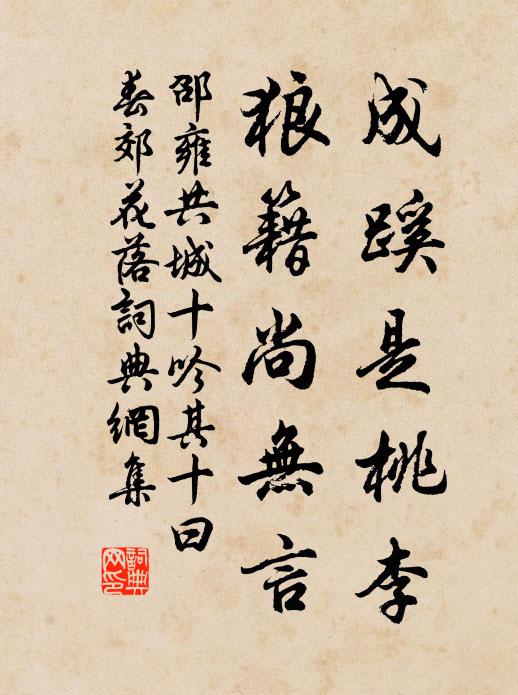 成蹊是桃李
狼籍尚無言
邵雍共城十吟其十曰
春郊花落詞典網集
詞典
网印